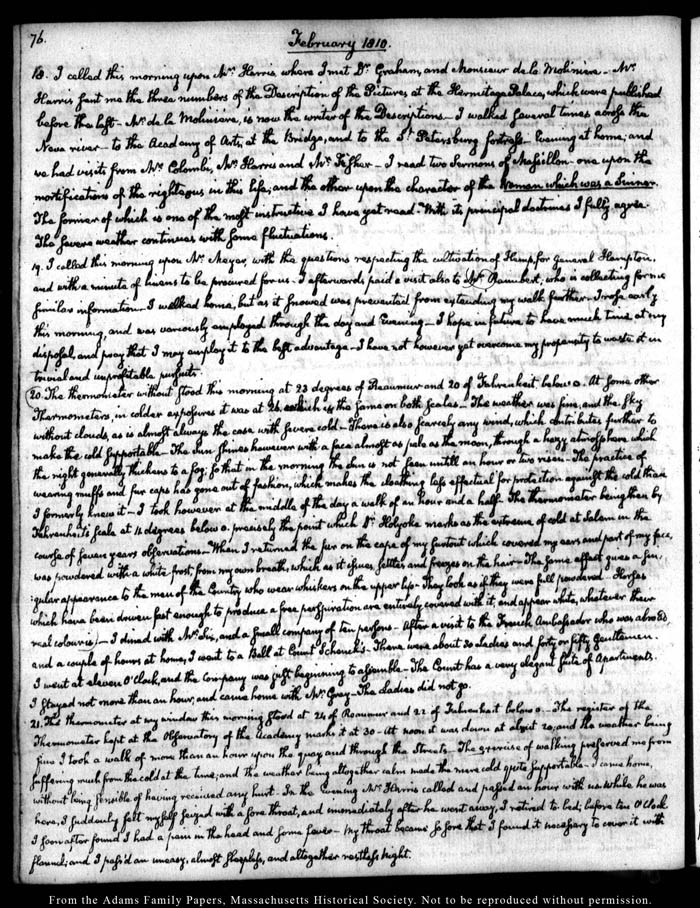 76.
February 1810.
18. I called this morning upon Mr. Harris, where I met Dr. Graham, and Monsieur de la Moliniere — Mr.
Harris sent me the three numbers of the Description of the Pictures at the Hermitage Palace, which were published
before the last — Mr. de la Moliniere, is now the writer of the Descriptions — I walked several times across the
Neva river — to the Academy of Arts, at the Bridge, and to the St. Petersburg fortress — Evening at home; and
we had visits from Mr. Colombi, Mr. Harris and Mr. Fisher — I read two Sermons of Massillon — one upon the
mortifications of the righteous in this life; and the other upon the character of the Woman which was a Sinner.
The former of which is one of the most instructive I have yet read — With its principal doctrines I fully agree.
The severe weather continues with some fluctuations.
19. I called this morning upon Mr. Meyer, with the questions respecting the cultivation of Hemp, for General Hampton,
and with a minute of linens to be procured for us. I afterwards paid a visit also to Mr. Raimbert, who is collecting for me
similar information. I walked home, but as it snowed was prevented from extending my walk further — I rose early
this morning, and was variously employed through the day and Evening — I hope in future to have much time at my
disposal, and pray that I may employ it to the best advantage — I have not however yet overcome my propensity to waste it in
trivial and unprofitable pursuits.
20. The thermometer without stood this morning at 23 degrees of Reaumur and 20 of Fahrenheit below 0. At some other
Thermometers, in colder exposures it was at 26. which is the same on both Scales — The weather was fine, and the sky
without clouds, as is almost always the case with severe cold — There is also scarcely any wind, which contributes further to
make the cold supportable — The Sun shines however with a face almost as pale as the moon, through a hazy atmosphere which
the night generally thickens to a fog; so that in the morning the Sun is not seen untill an hour or two risen — The practice of
wearing muffs and fur caps has gone out of fashion, which makes the cloathing less effectual for protection against the cold than
I formerly knew it — I took however at the middle of the day a walk of an hour and a half — The thermometer being then by
Fahrenheit's Scale at 11 degrees below 0. precisely the point which Dr. Holyoke marks as the extreme of cold at Salem in the
course of seven years observations — When I returned the fur on the cape of my surtout which covered my ears and part of my face,
was powdered with a white frost, from my own breath, which as it issues, settles and freezes on the hair — The same effect gives a sin-
:gular appearance to the men of the Country who wear whiskers on the upper lip — They look as if they were full powdered — Horses
which have been driven fast enough to produce a free perspiration are entirely covered with it, and appear white, whatever their
real colour is) — I dined with Mr. Six, and a small company of ten persons — After a visit to the French Ambassador who was abroad
and a couple of hours at home, I went to a Ball at Count Schenk's — There were about 30 Ladies and forty or fifty Gentlemen.
I went at eleven O'Clock, and the Company was just beginning to assemble — The Count has a very elegant suite of Apartments.
I stayed not more than an hour, and came home with Mr. Gray — The Ladies did not go.
21. The thermometer at my window this morning stood at 24 of Reaumur and 22 of Fahrenheit below 0 — The register of the
Thermometer kept at the Observatory of the Academy marks it at 30 — At noon it was down at about 20; and the weather being
fine I took a walk of more than an hour upon the quay and through the Streets — The exercise of walking preserved me from
suffering much from the cold at the time; and the weather being altogether calm made the mere cold quite supportable — I came home,
without being sensible of having received any hurt. In the evening Mr. Harris called and passed an hour with us. While he was
here, I suddenly felt myself seized with a sore throat, and immediately after he went away, I retired to bed; before ten O'Clock
I soon after found I had a pain in the head and some fever — My throat became so sore that I found it necessary to cover it with
flannel; and I pass'd an uneasy, almost sleepless, and altogether restless night.
From the Adams Family Papers, Massachusetts Historical Society. Not to be reproduced without permission.